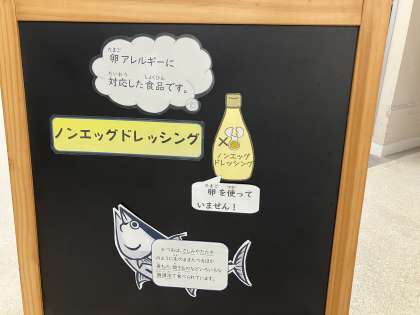 卵アレルギーに
対応した食品です。
ノンエッグドレッシング
ノンエッグ
ドレッシング
卵を使って
いません！
かつおは、さしみやたたき